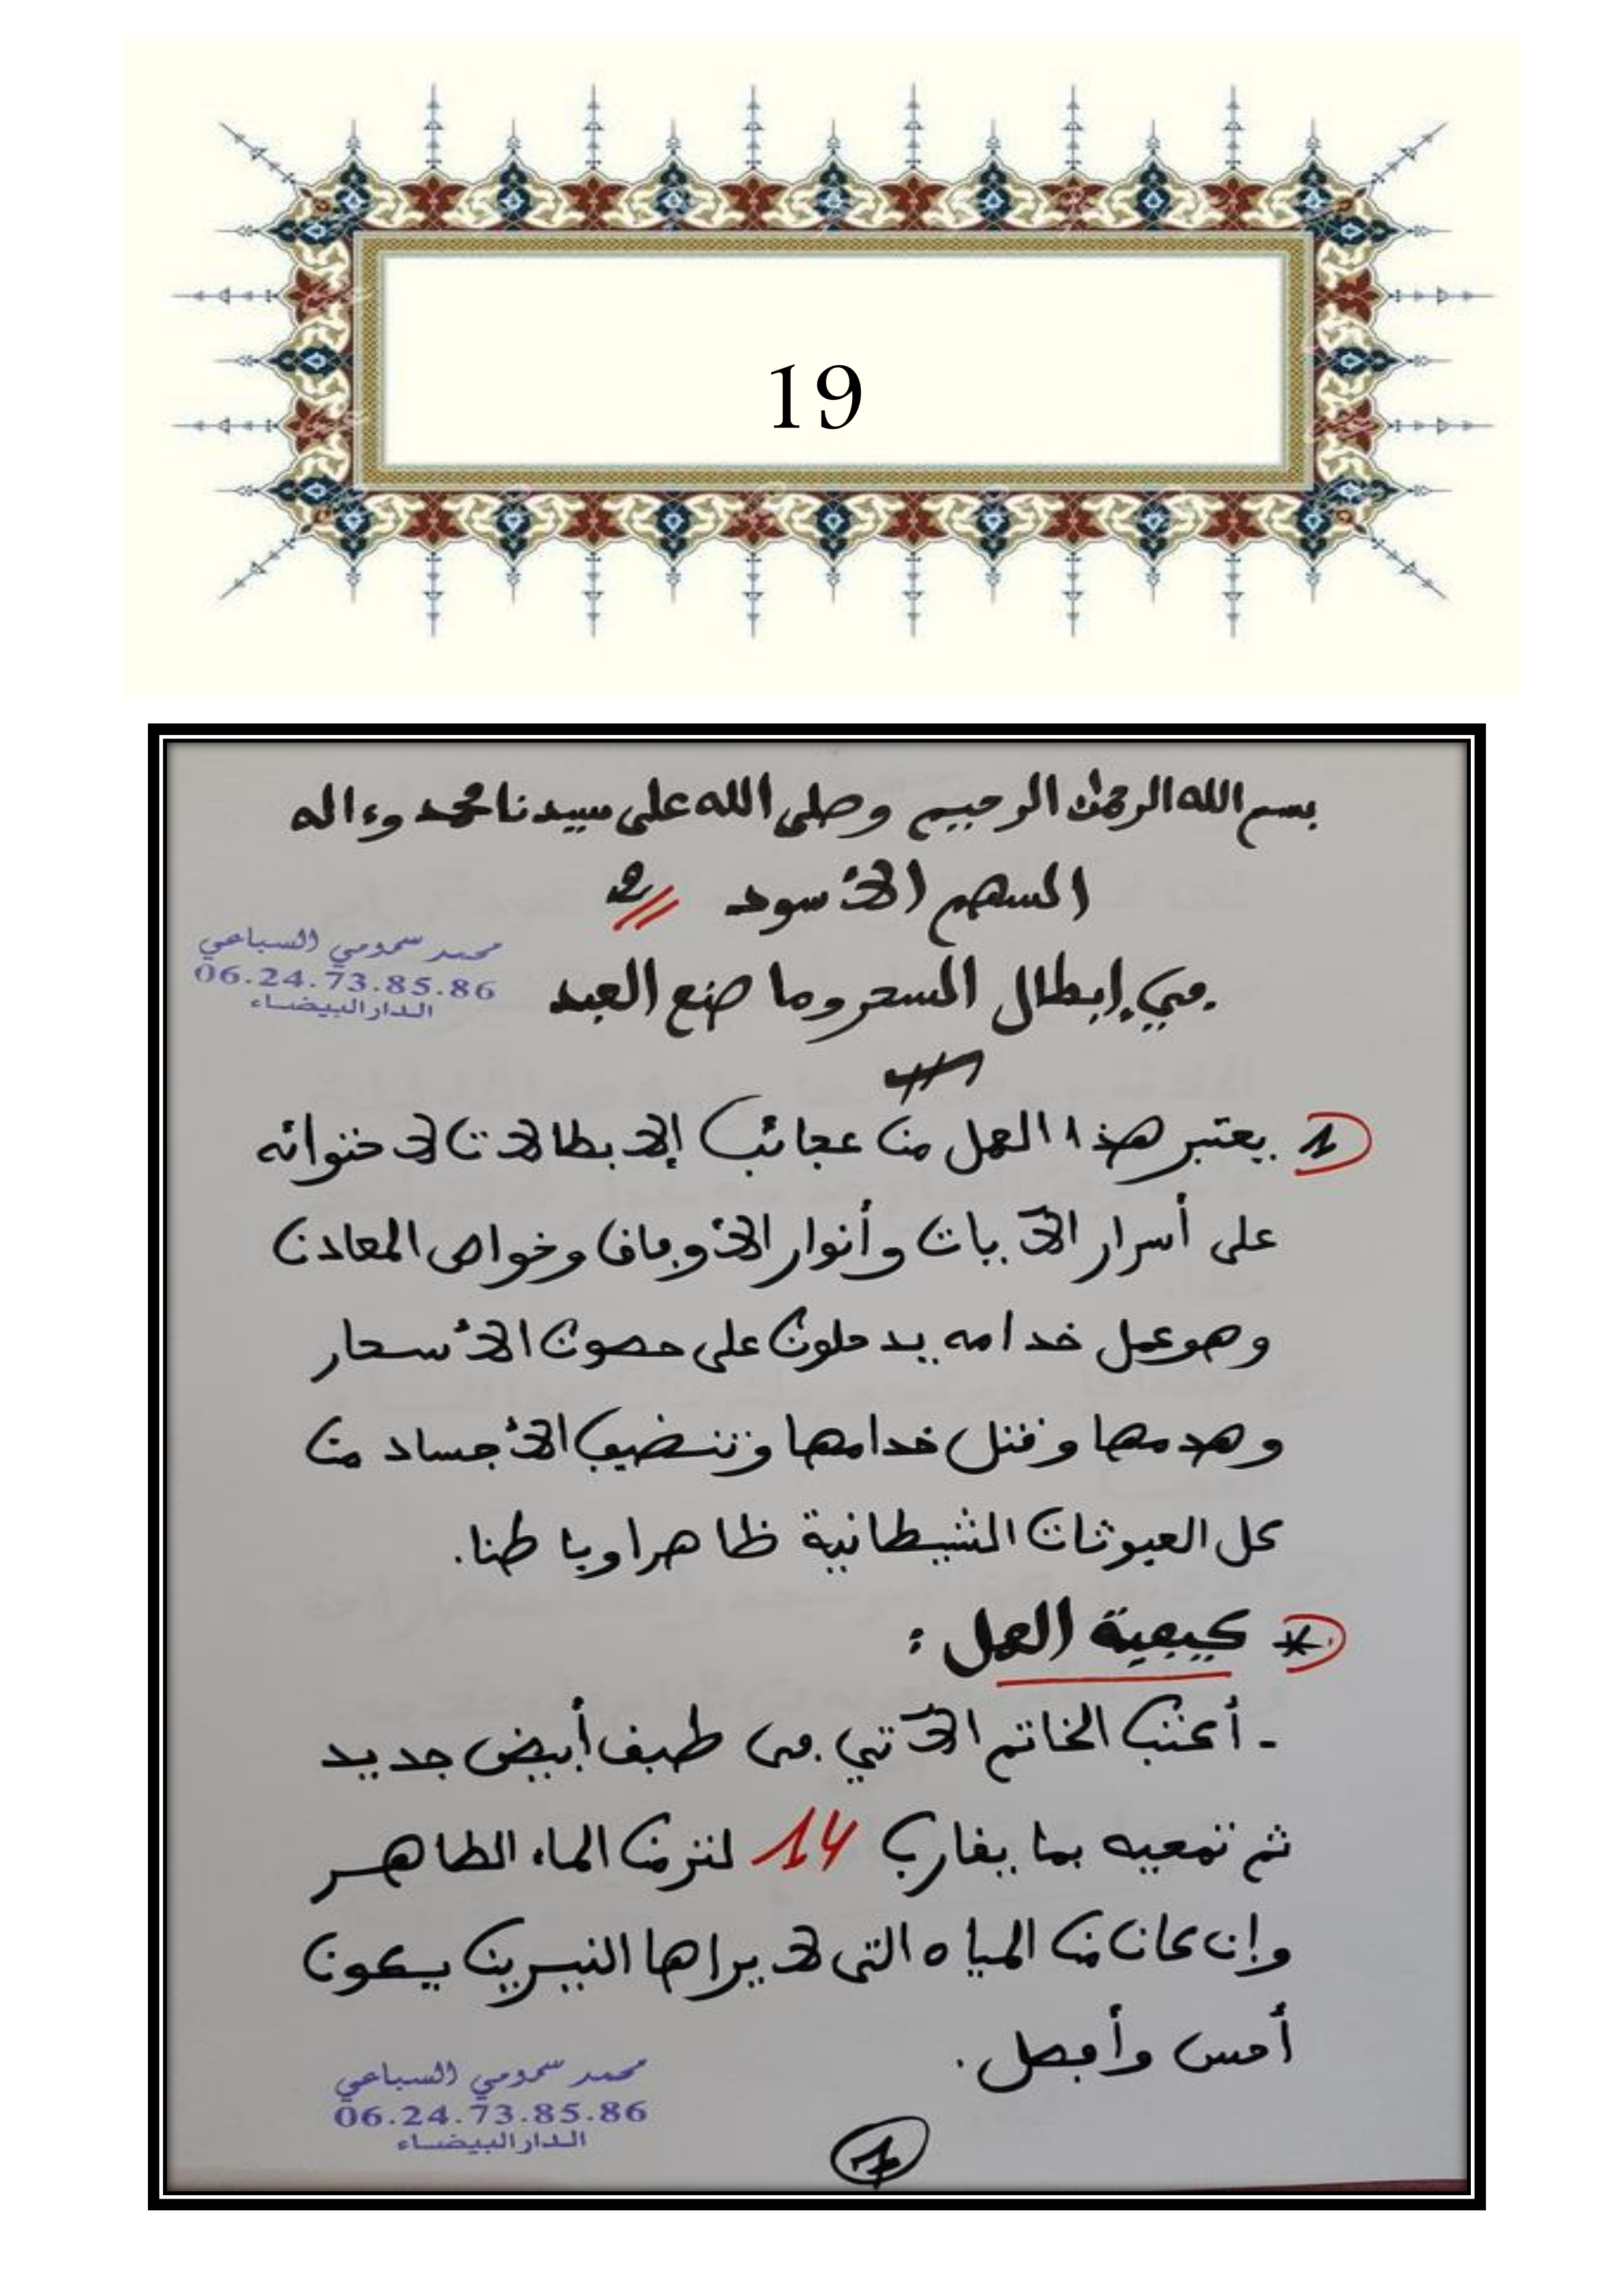 19
بسم الله الرحمن الرحيم وصلى الله على سيدنا محمد وءاله
السهم الأسود 2
في إبطال السحر وما صنع العبد
محمد سمومي السباعي
06.24.73.85.86
الدار البيضاء
1 يعتبر هذا العمل من عجائب الإبطالات لاحتوائه
على أسرار الآيات وأنوار الأوفاق وخواص المعادن
وهو عمل خدامه يدخلون على حصون الأسحار
وهدمها وقتل خدامها وتنضيف الأجساد من
كل العبوثات الشيطانية ظاهرا وباطنا.
* كيفية العمل :
- أكتب الخاتم الآتي في طبق أبيض جديد
ثم تمحيه بما يقارب 14 لتر من الماء الطاهر
وإن كان من المياه التي لا يراها النيرين يكون
أحسن وأفضل.
محمد سمومي السباعي
06.24.73.85.86
الدار البيضاء
1